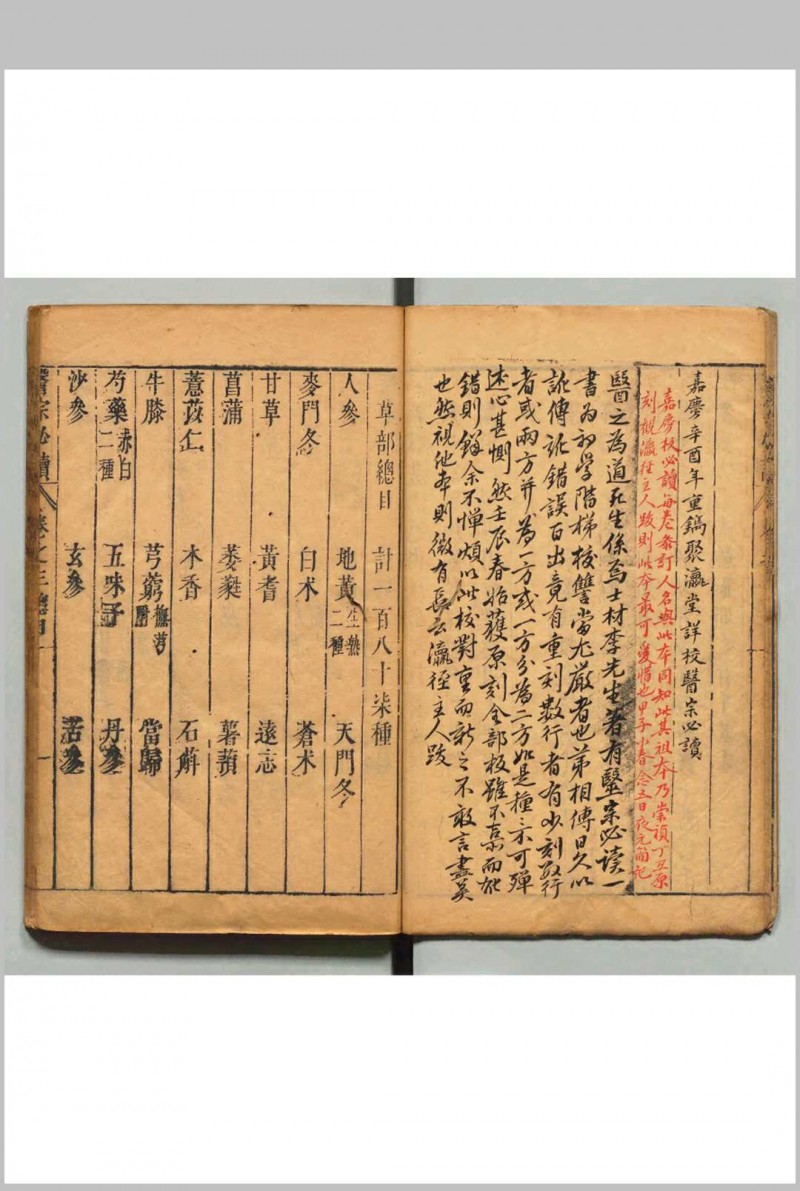 嘉慶辛酉年重鐫聚瀛堂詳校醫宗必讀
嘉慶板必讀每卷參訂人名與此本同知此其祖本乃崇禎丁丑原
刻觀瀛徑主人跋則此本最可愛惜也甲子小春念五日夜元簡記
醫之為道死生係焉士材李先生著有醫宗必讀一
書為初學階梯校讐當尤嚴者也第相傳日久以
訛傳訛錯誤百出竟有重刻數行者有少刻數行
者或兩方并為一方或一方分為二方如是種〻不可殫
述心甚惻然壬辰春始獲原刻全部板雖不慕而能
錯則鮮余不憚煩以此校對重而新之不敢言盡美
也然視他本則微有長云瀛徑主人跋
草部總目 計一百八十柒種
人參 地黃生熟二種 天門冬
麥門冬 白朮 蒼朮
甘草 黃耆 遠志
菖蒲 萎蕤 薯蕷
薏苡仁 木香 石斛
牛膝 芎藭附撫芎 當歸
芍藥赤白二種 五味子 丹參
沙參 玄參 苦參
醫宗必讀 卷之三總目 一